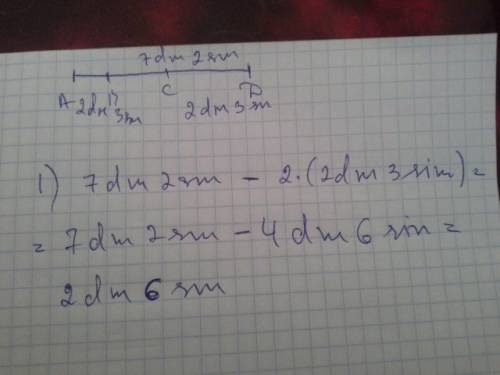 7dm 2sm
A 2dm B 3sm C 2dm 3sm D
1) 7dm 2sm - 2·(2dm 3sm) =
= 7dm 2sm - 4dm 6sm =
2dm 6sm